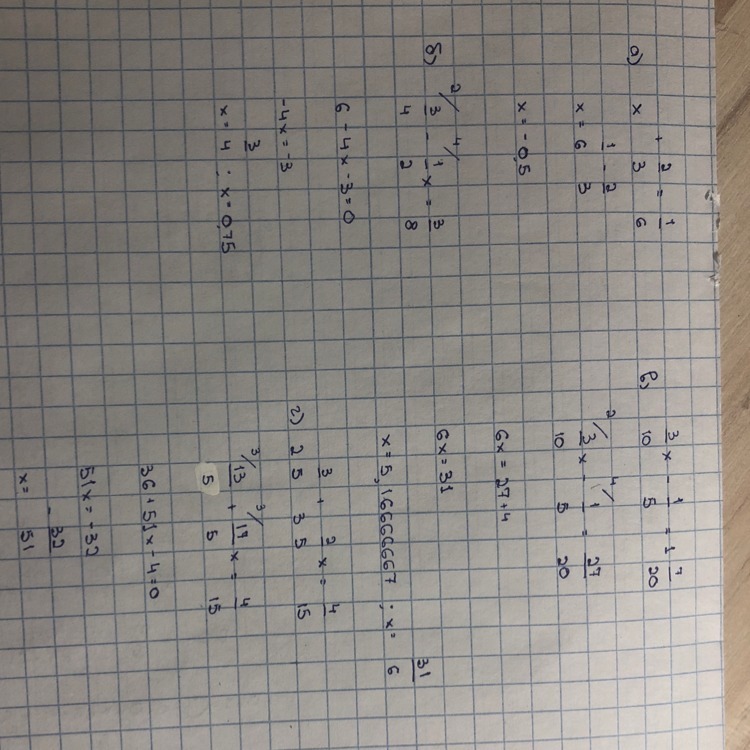 а) x + 2/3 = 1/6
x = 1/6 - 2/3
x = -0,5
б) 2/ 3/4 - 4/ 1/2 x = 3/8
6 - 4x - 3 = 0
-4x = -3
x = 3/4 ; x = 0,75
в) 3/10 x - 1/5 = 1 7/20
2/ 3/10 x - 4/ 1/5 = 27/20
6x = 27 + 4
6x = 31
x = 5,166666667 ; x = 31/6
г) 2 3/5 + 3 2/5 x = 4/15
3/ 13/5 + 3/ 17/5 x = 4/15
36 + 51x - 4 = 0
51x = -32
x = - 32/51